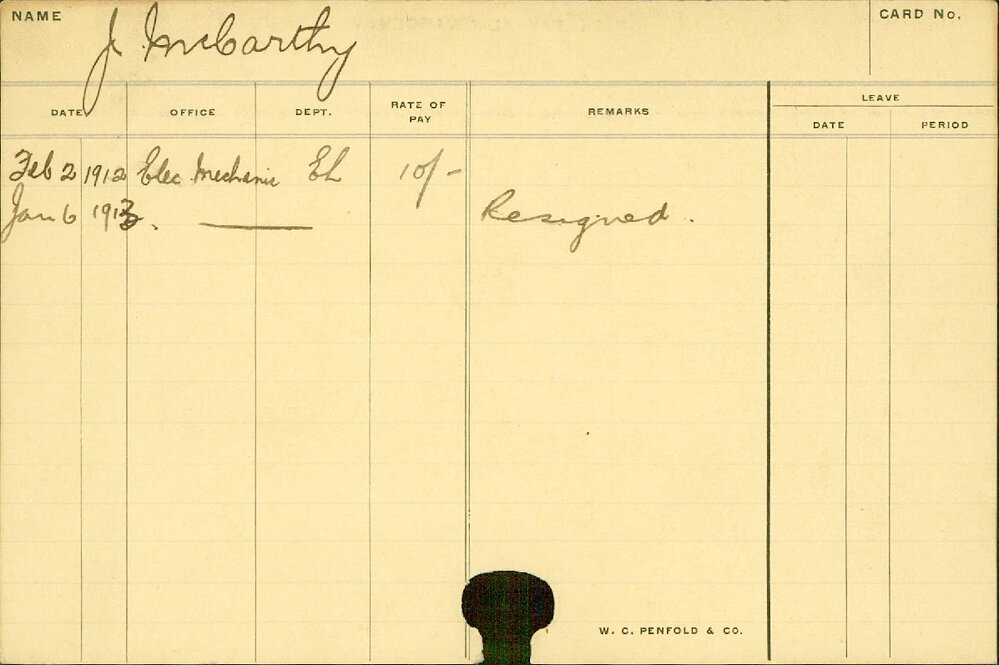 NAME J McCarthy CARD No.
LEAVE
DATE OFFICE DEPT. RATE OF PAY REMARKS DATE PERIOD
Feb 2 1912 Elec. Mechanic EL 10/-
Jan 6 1913. —— Resigned.
W. C. PENFOLD & CO.